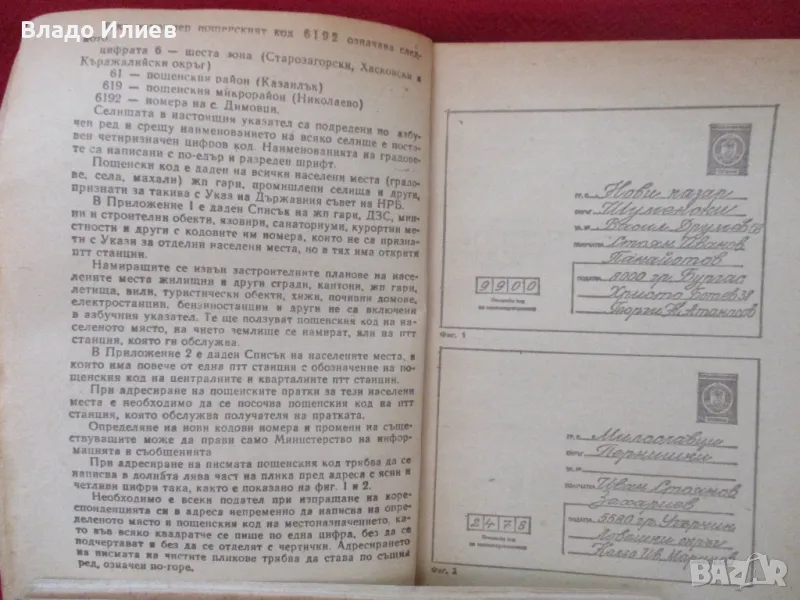 Владо Илиев
пощенският код 6192 означава след-
ното:
цифрата 6 — шеста зона (Старозагорски, Хасковски и
Кърджалийски окръг)
61 — пощенския район (Казанлък)
619 — пощенския микрорайон (Николаево)
6192 — номера на с. Димовци.
Селищата в настоящия указател са подредени по азбу-
чен ред и срещу наименованието на всяко селище е поста-
вен четиризначен цифров код. Наименованията на градове-
те са написани с по-едър и разреден шрифт.
Пощенски код е даден на всички населени места (градо-
ве, села, махали) жп гари, промишлени селища и други,
признати за такива с Указ на Държавния съвет на НРБ.
В Приложение 1 е даден Списък на жп гари, ДЗС, мин-
ни и строителни обекти, язовири, санаториуми, курортни ме-
стности и други с кодовите им номера, които не са призна-
ти с Укази за отделни населени места, но в тях има открити
птт станции.
Намиращите се извън застроителните планове на насе-
лените места жилищни и други сгради, кантони, жп гари,
летища, вили, туристически обекти, хижи, почивни домове,
електростанции, бензиностанции и други не са включени
в азбучния указател. Те ще ползуват пощенския код на на-
селеното място, на чието землище се намират, или на птт
станция, която ги обслужва.
В Приложение 2 е даден Списък на населените места, в
които има повече от една птт станции с обозначение на по-
щенския код на централните и кварталните птт станции.
При адресиране на пощенските пратки за тези населени
места е необходимо да се посочва пощенския код на птт
станция, която обслужва получателя на пратката.
Определяне на нови кодови номера и промени на съще-
ствуващите може да прави само Министерство на инфор-
мацията и съобщенията
При адресиране на писмата пощенският код трябва да се
написва в долната лява част на плика пред адреса с ясни и
четливи цифри така, както е показано на фиг. 1 и 2.
Необходимо е всеки подател при изпращане на коре-
спонденцията си в адреса непременно да написва на опре-
деленото място и пощенския код на местоназначението, ка-
то във всяко квадратче се пише по една цифра, без да се
подчертават и без да се отделят с чертички. Адресирането
на писмата на чистите пликове трябва да става по същия
ред, означен по-горе.
ГР./С. Нови пазар
ОКРЪГ Шуменски
УЛ. № Васил Друмев
ПОЛУЧАТЕЛ Стоян Иванов
Панайотов
9900
ПОДАТЕЛ 8000 гр. Бургас
Христо Ботев 38
Георги Н. Атанасов
Фиг. 1
ГР./С. Милославци
ОКРЪГ Пернишки
УЛ. №
ПОЛУЧАТЕЛ Иван Стоянов
Захариев
2478
ПОДАТЕЛ 5580 гр. Угърчин
Ловешки окръг
Фиг. 2
BAZAR